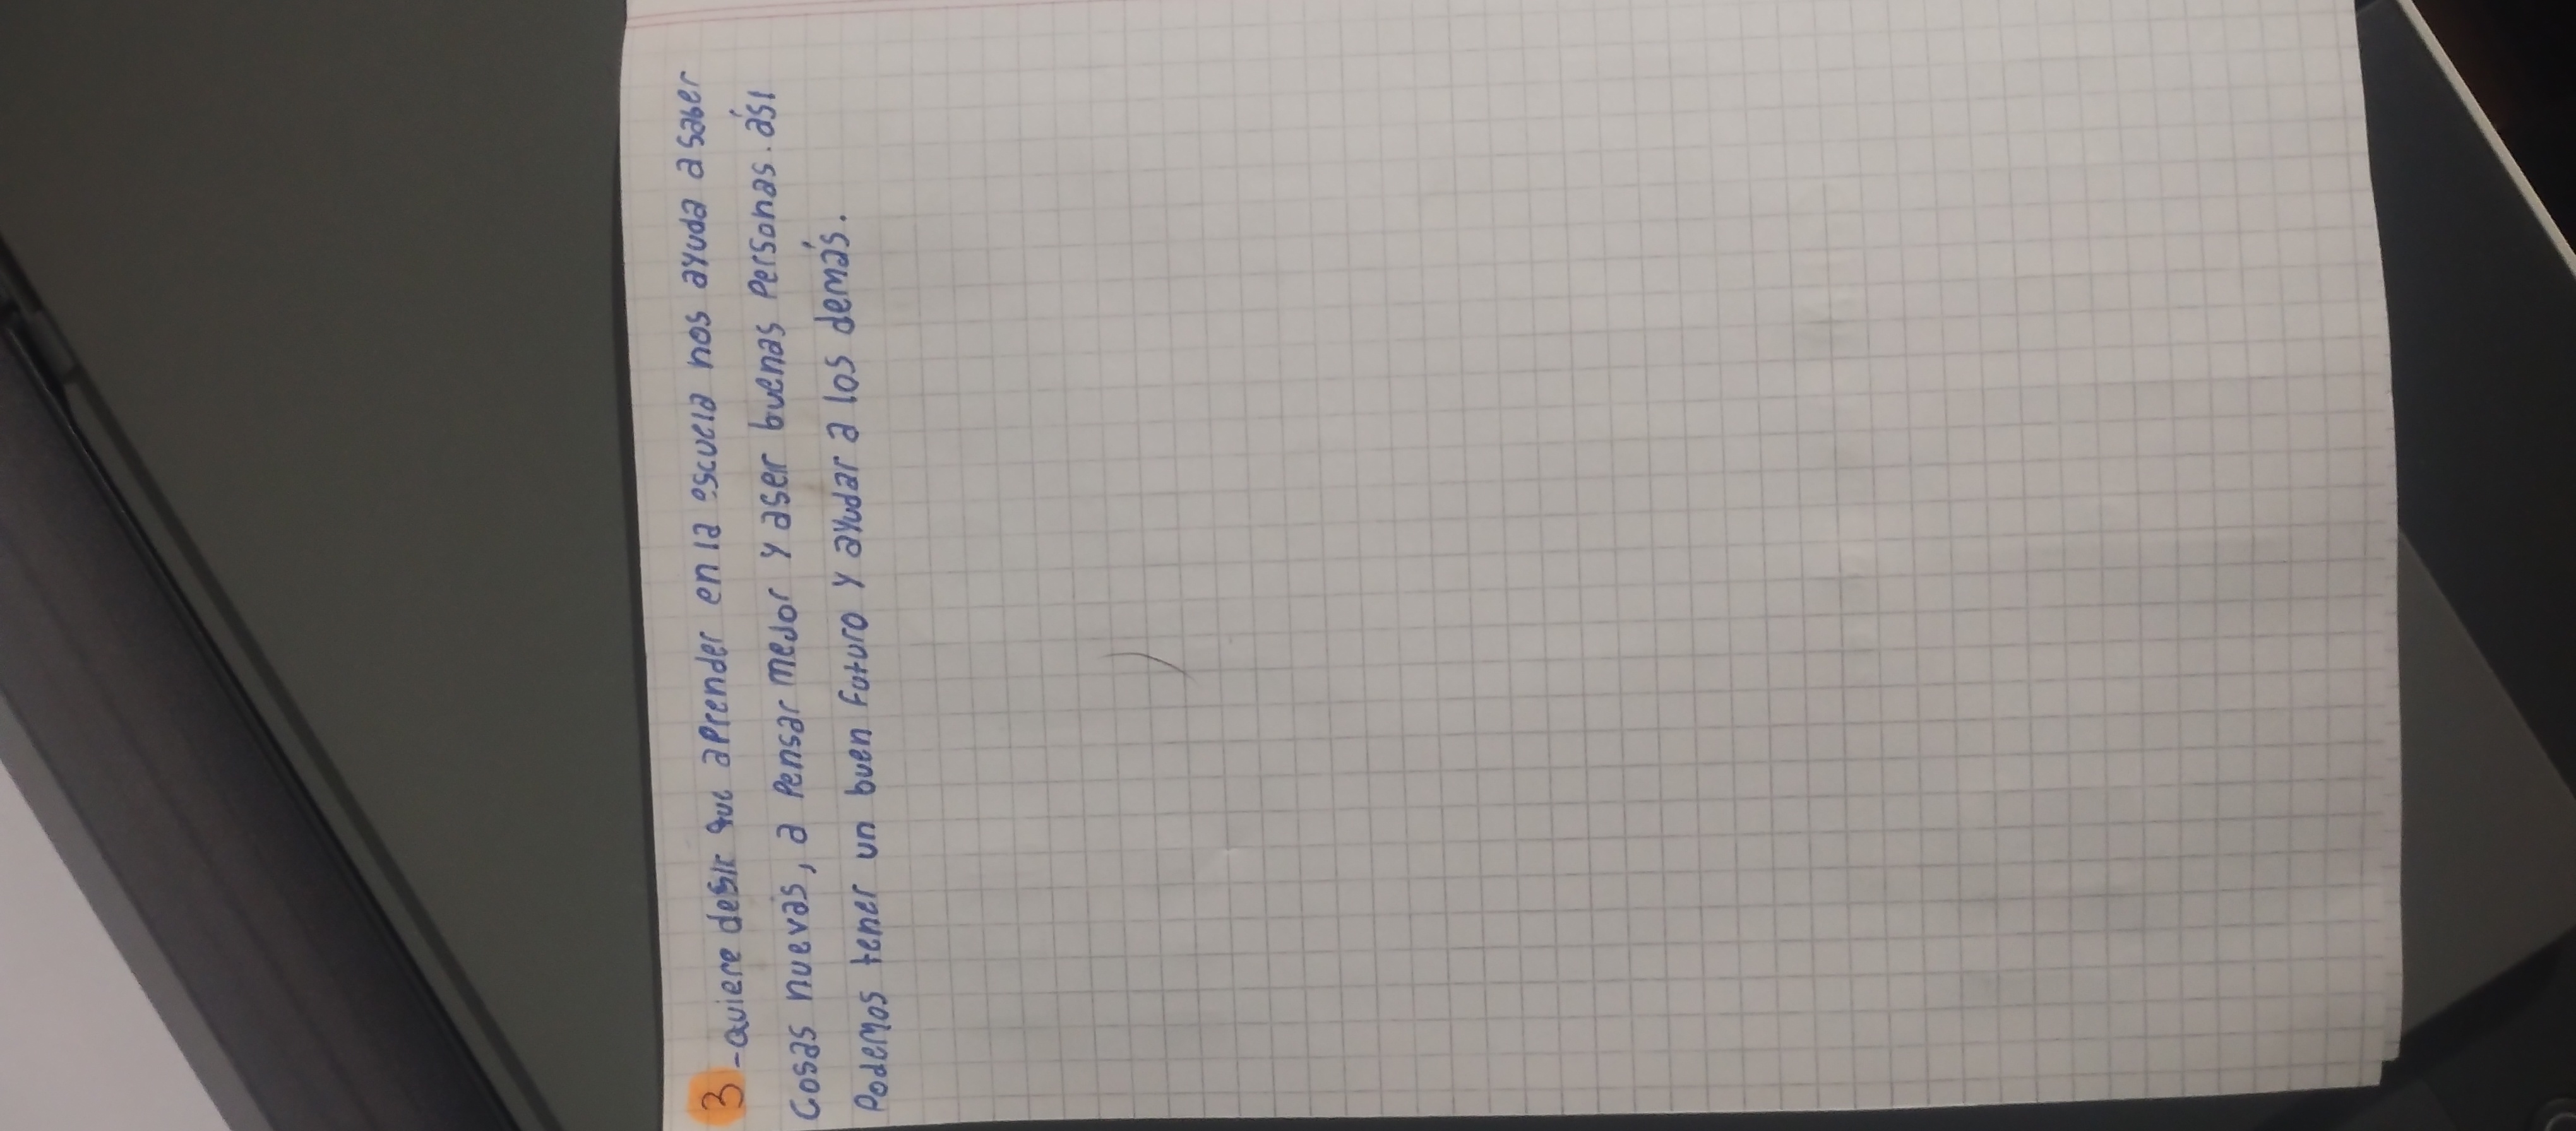 3 -quiere desir que aprender en la escuela nos ayuda a saber
Cosas nuevas, a Pensar mejor y aser buenas Personas. ási
Podemos tener un buen Futuro y ayudar a los demás.